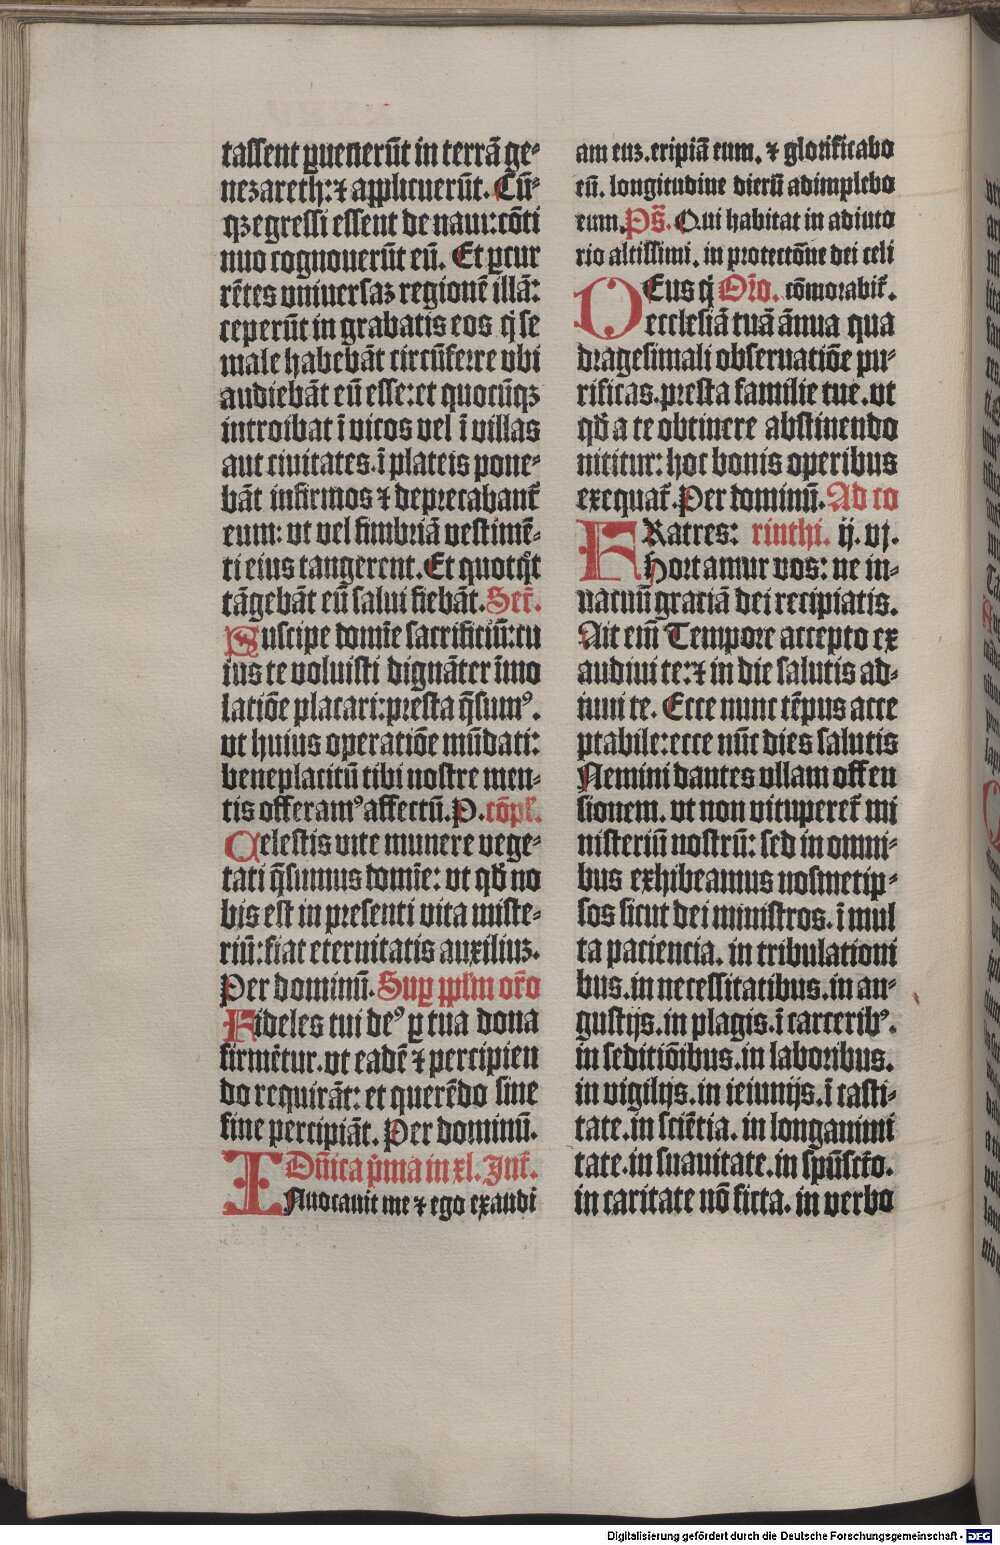 tassent ꝑuenerūt in terrā ge⸗
nezareth: ⁊ applicuerūt. Cū⸗
qꝫ egressi essent de naui: cōti
nuo cognouerūt eū. Et ꝑcur
rētes vniuersaꝫ regionē illā:
ceperūt in grabatis eos q̇ se
male habebāt circūferre vbi
audiebāt eū esse: et quocūqꝫ
introibat ī vicos vel ī villas
aut ciuitates. ī plateis pone⸗
bāt infirmos ⁊ deprecabant̄
eum: vt vel fimbriā vestimē⸗
ti eius tangerent. Et quotq̇t
tāgebāt eū salui fiebāt. Secr̄.
Suscipe domīe sacrificiū: cu
ius te voluisti dignāter īmo
latiōe placari: presta q̄sumꝰ.
vt huius operatiōe mūdati:
beneplacitū tibi nostre men⸗
tis offeramꝰ affectū. P. cōpl̄.
Celestis vite munere vege⸗
tati q̄sumus domīe: vt qd̄ no
bis est in presenti vita miste⸗
riū: fiat eternitatis auxiliuꝫ.
Per dominū. Suꝑ ppl̄m or̄o
Fideles tui deꝰ ꝑ tua dona
firmētur. vt eadē ⁊ percipien
do requirāt: et querēdo sine
fine percipiāt. Per dominū.
Dn̄ica p̄ma in xl. Int̄.
INuocauit me ⁊ ego exaudi
am euꝫ. eripiā eum. ⁊ glorificabo
eū. longitudine dierū adimplebo
eum. Ps̄. Qui habitat in adiuto
rio altissimi. in protectōne dei celi
DEus q̇ Or̄o. cōmorabit̄.
ecclesiā tuā ānua qua
dragesimali obseruatiōe pu⸗
rificas. presta familie tue. vt
qd̄ a te obtinere abstinendo
nititur: hoc bonis operibus
exequat̄. Per dominū. Ad co
FRatres: rinthi. ij. vj.
Hortamur vos: ne in⸗
vacuū graciā dei recipiatis.
Ait em̄ Tempore accepto ex
audiui te: ⁊ in die salutis ad⸗
iuui te. Ecce nunc tēpus acce
ptabile: ecce nūc dies salutis
Nemini dantes vllam offen
sionem. vt non vituperet̄ mi
nisteriū nostrū: sed in omni⸗
bus exhibeamus nosmetip⸗
sos sicut dei ministros. ī mul
ta paciencia. in tribulationi
bus. in necessitatibus. in an⸗
gustijs. in plagis. ī carceribꝰ.
in seditiōibus. in laboribus.
in vigilijs. in ieiunijs. ī casti⸗
tate. in sciētia. in longanimi
tate. in suauitate. in spū scto̅.
in caritate nō ficta. in verbo
Digitalisierung gefördert durch die Deutsche Forschungsgemeinschaft - DFG